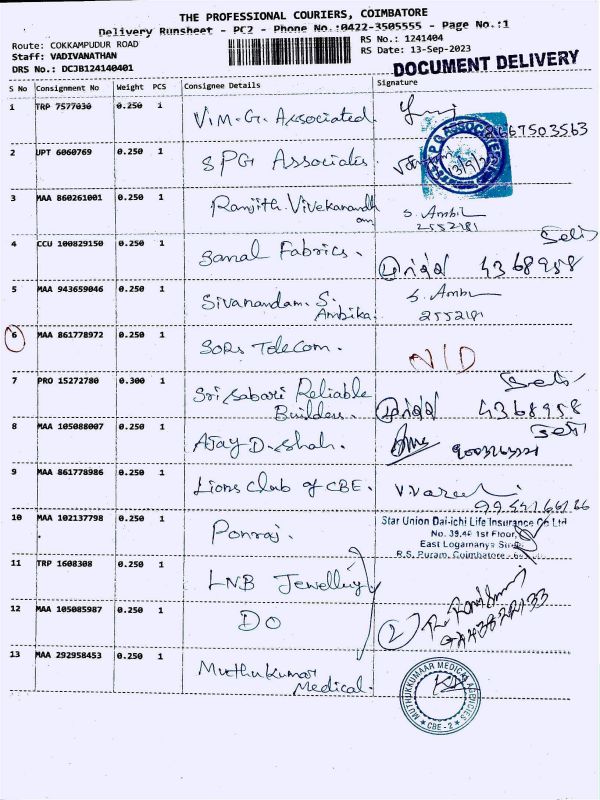 THE PROFESSIONAL COURIERS, COIMBATORE
Delivery Runsheet - PC2 - Phone No.:0422-3505555 - Page No.:1
Route: COKKAMPUDUR ROAD
Staff: VADIVANATHAN
DRS No.: DCJB124140401
RS No.: 1241404
RS Date: 13-Sep-2023
DOCUMENT DELIVERY
S No Consignment No Weight PCS Consignee Details Signature
1 TRP 7577030 0.250 1 V.M.G. Associated
8667503563
2 UPT 6060769 0.250 1 SPG Associates.
13/9/2
3 MAA 860261001 0.250 1 Ranjith Vivekanandh
S. Ambi
2552181
4 CCU 100829150 0.250 1 Sanal Fabrics.
4368958
5 MAA 943659046 0.250 1 Sivanandam. S.
Ambika.
S. Ambi
2552181
6 MAA 861778972 0.250 1 SORS Telecom. N/D
7 PRO 15272780 0.300 1 Sri Sabari Reliable
Builders.
4368958
8 MAA 105088007 0.250 1 Ajay D. Shah.
9 MAA 861778986 0.250 1 Lions Club of CBE.
10 MAA 102137798 0.250 1 Ponraj.
Star Union Dai-ichi Life Insurance Co Ltd
No. 39,40 1st Floor,
East Logamanya Street
R.S. Puram, Coimbatore -
11 TRP 1608308 0.250 1 LNB Jewellery
12 MAA 105085987 0.250 1 DO
2
13 MAA 292958453 0.250 1 Muthukumar
Medical.
MUTHUKKUMAAR MEDICAL AGENCIES
CBE - 2